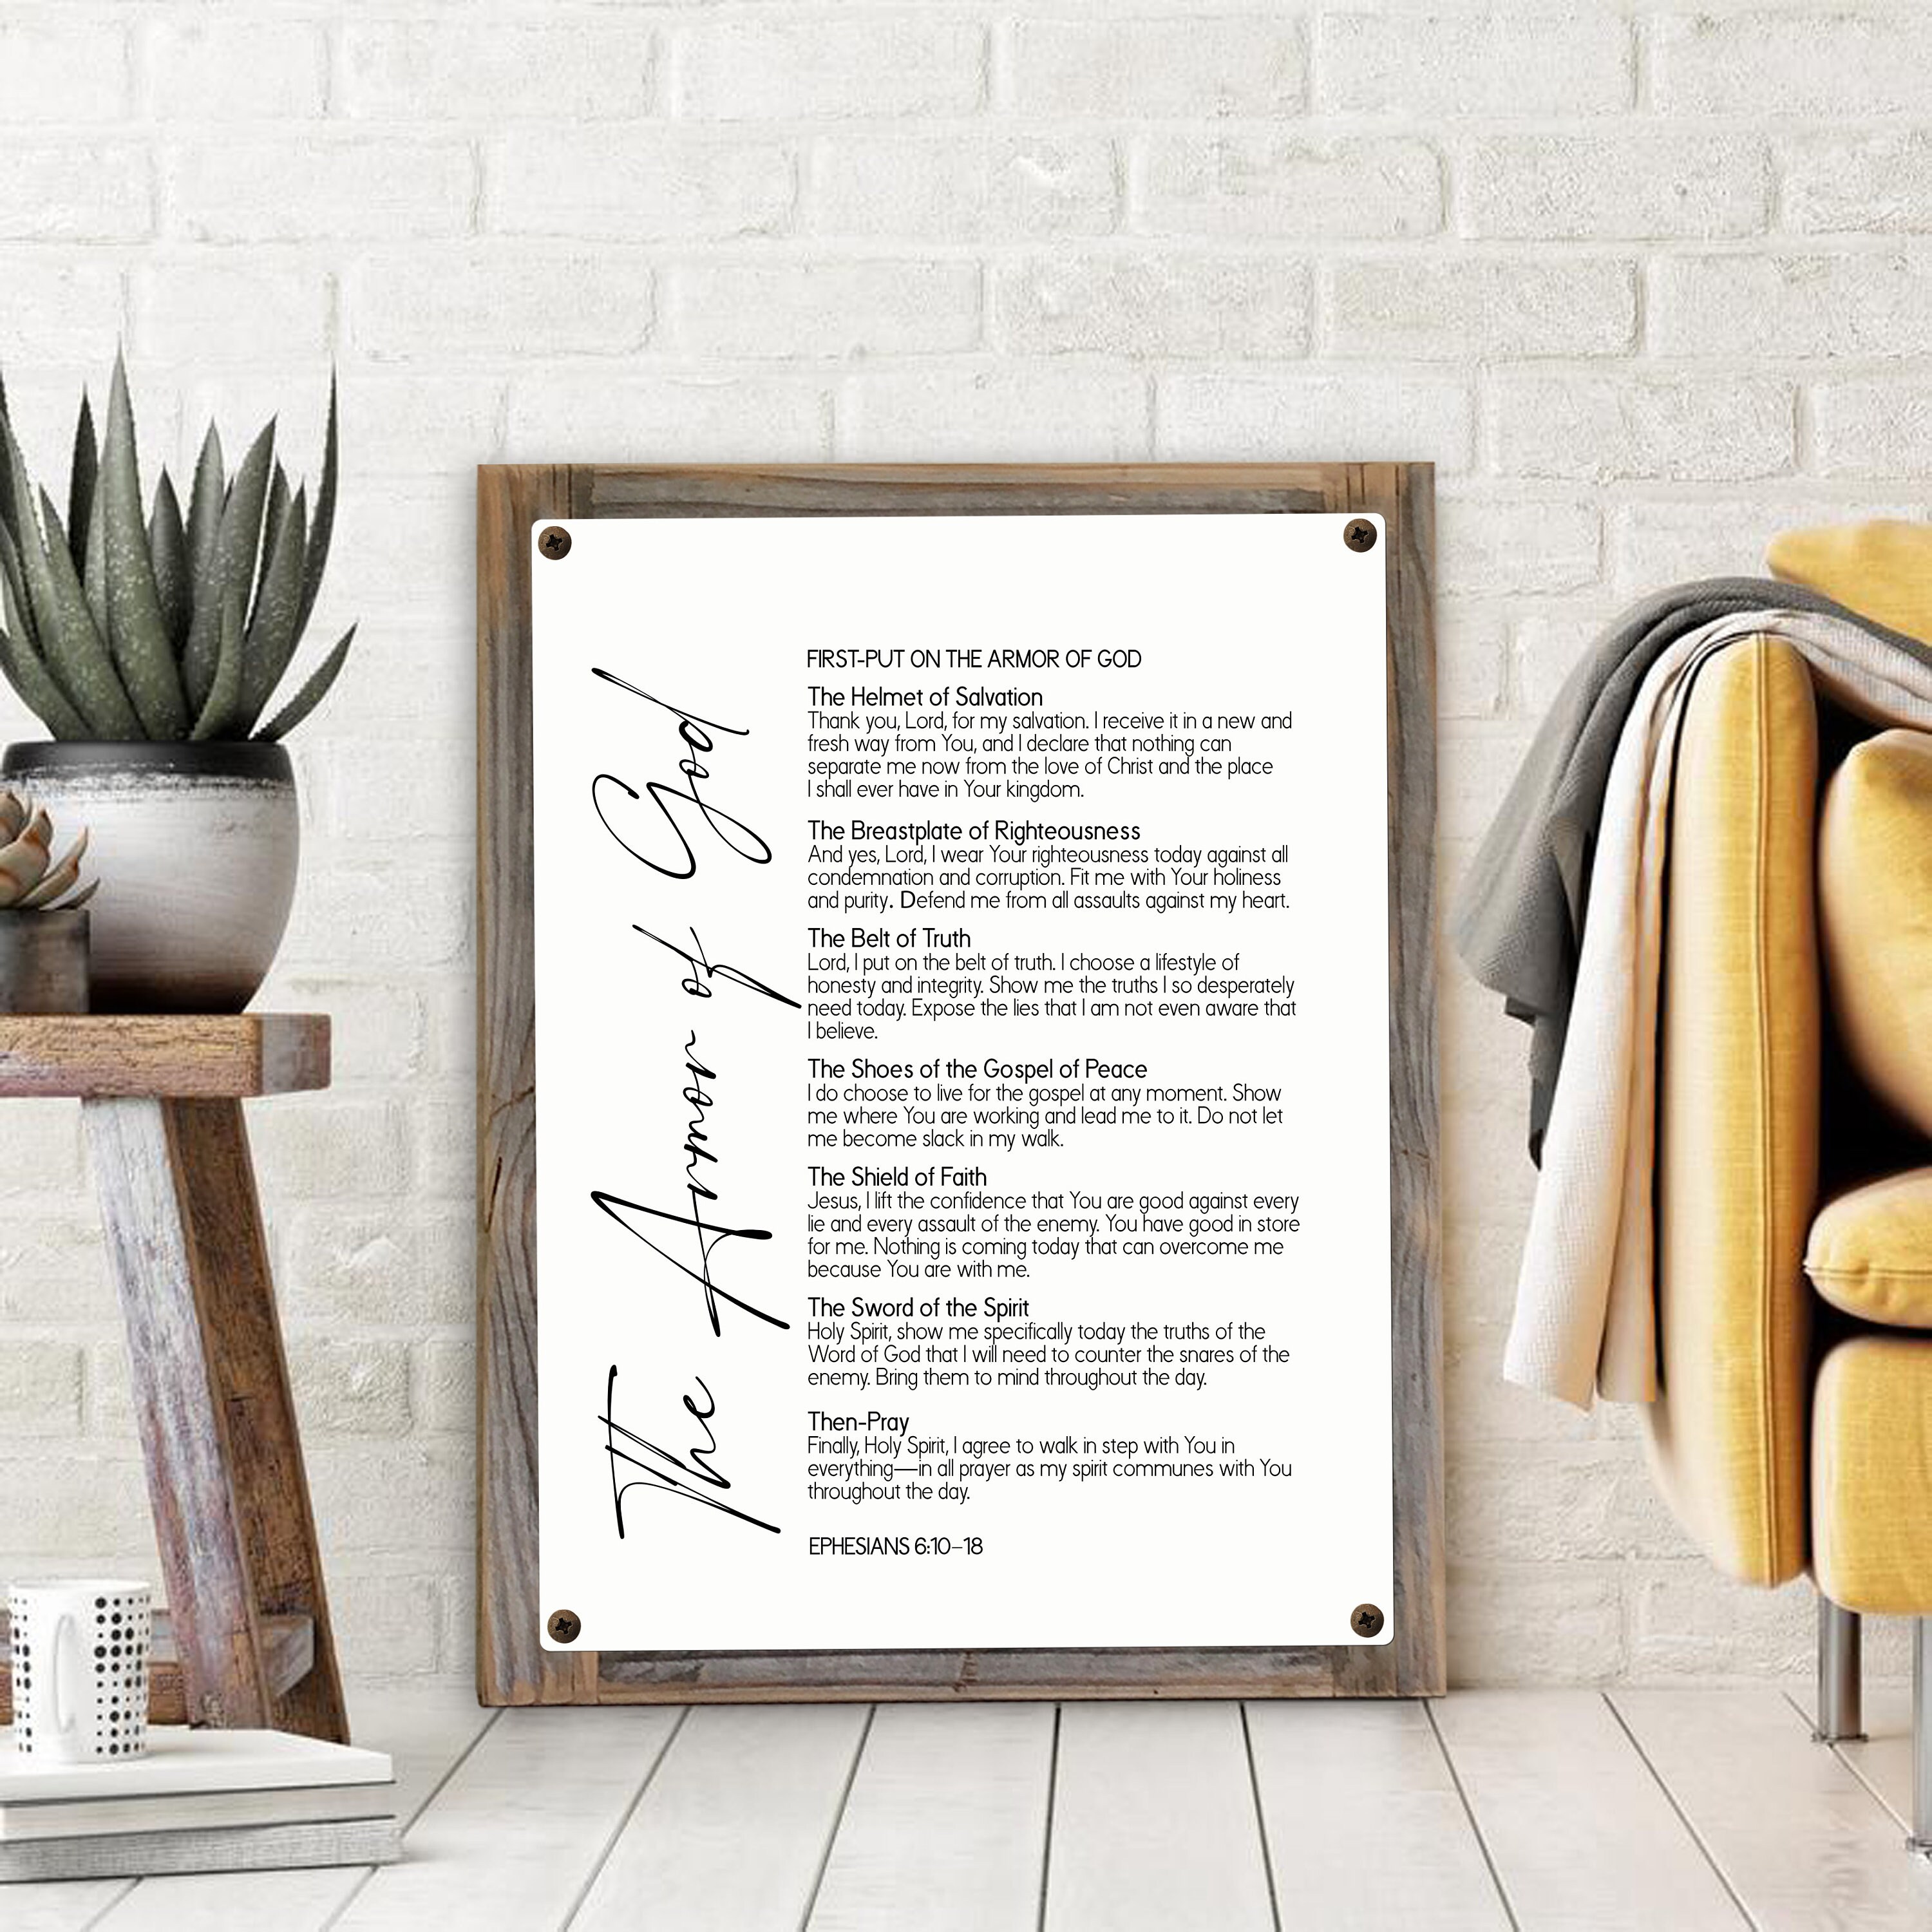 The Armor of God
FIRST-PUT ON THE ARMOR OF GOD
The Helmet of Salvation
Thank you, Lord, for my salvation. I receive it in a new and
fresh way from You, and I declare that nothing can
separate me now from the love of Christ and the place
I shall ever have in Your kingdom.
The Breastplate of Righteousness
And yes, Lord, I wear Your righteousness today against all
condemnation and corruption. Fit me with Your holiness
and purity. Defend me from all assaults against my heart.
The Belt of Truth
Lord, I put on the belt of truth. I choose a lifestyle of
honesty and integrity. Show me the truths I so desperately
need today. Expose the lies that I am not even aware that
I believe.
The Shoes of the Gospel of Peace
I do choose to live for the gospel at any moment. Show
me where You are working and lead me to it. Do not let
me become slack in my walk.
The Shield of Faith
Jesus, I lift the confidence that You are good against every
lie and every assault of the enemy. You have good in store
for me. Nothing is coming today that can overcome me
because You are with me.
The Sword of the Spirit
Holy Spirit, show me specifically today the truths of the
Word of God that I will need to counter the snares of the
enemy. Bring them to mind throughout the day.
Then-Pray
Finally, Holy Spirit, I agree to walk in step with You in
everything—in all prayer as my spirit communes with You
throughout the day.
EPHESIANS 6:10–18